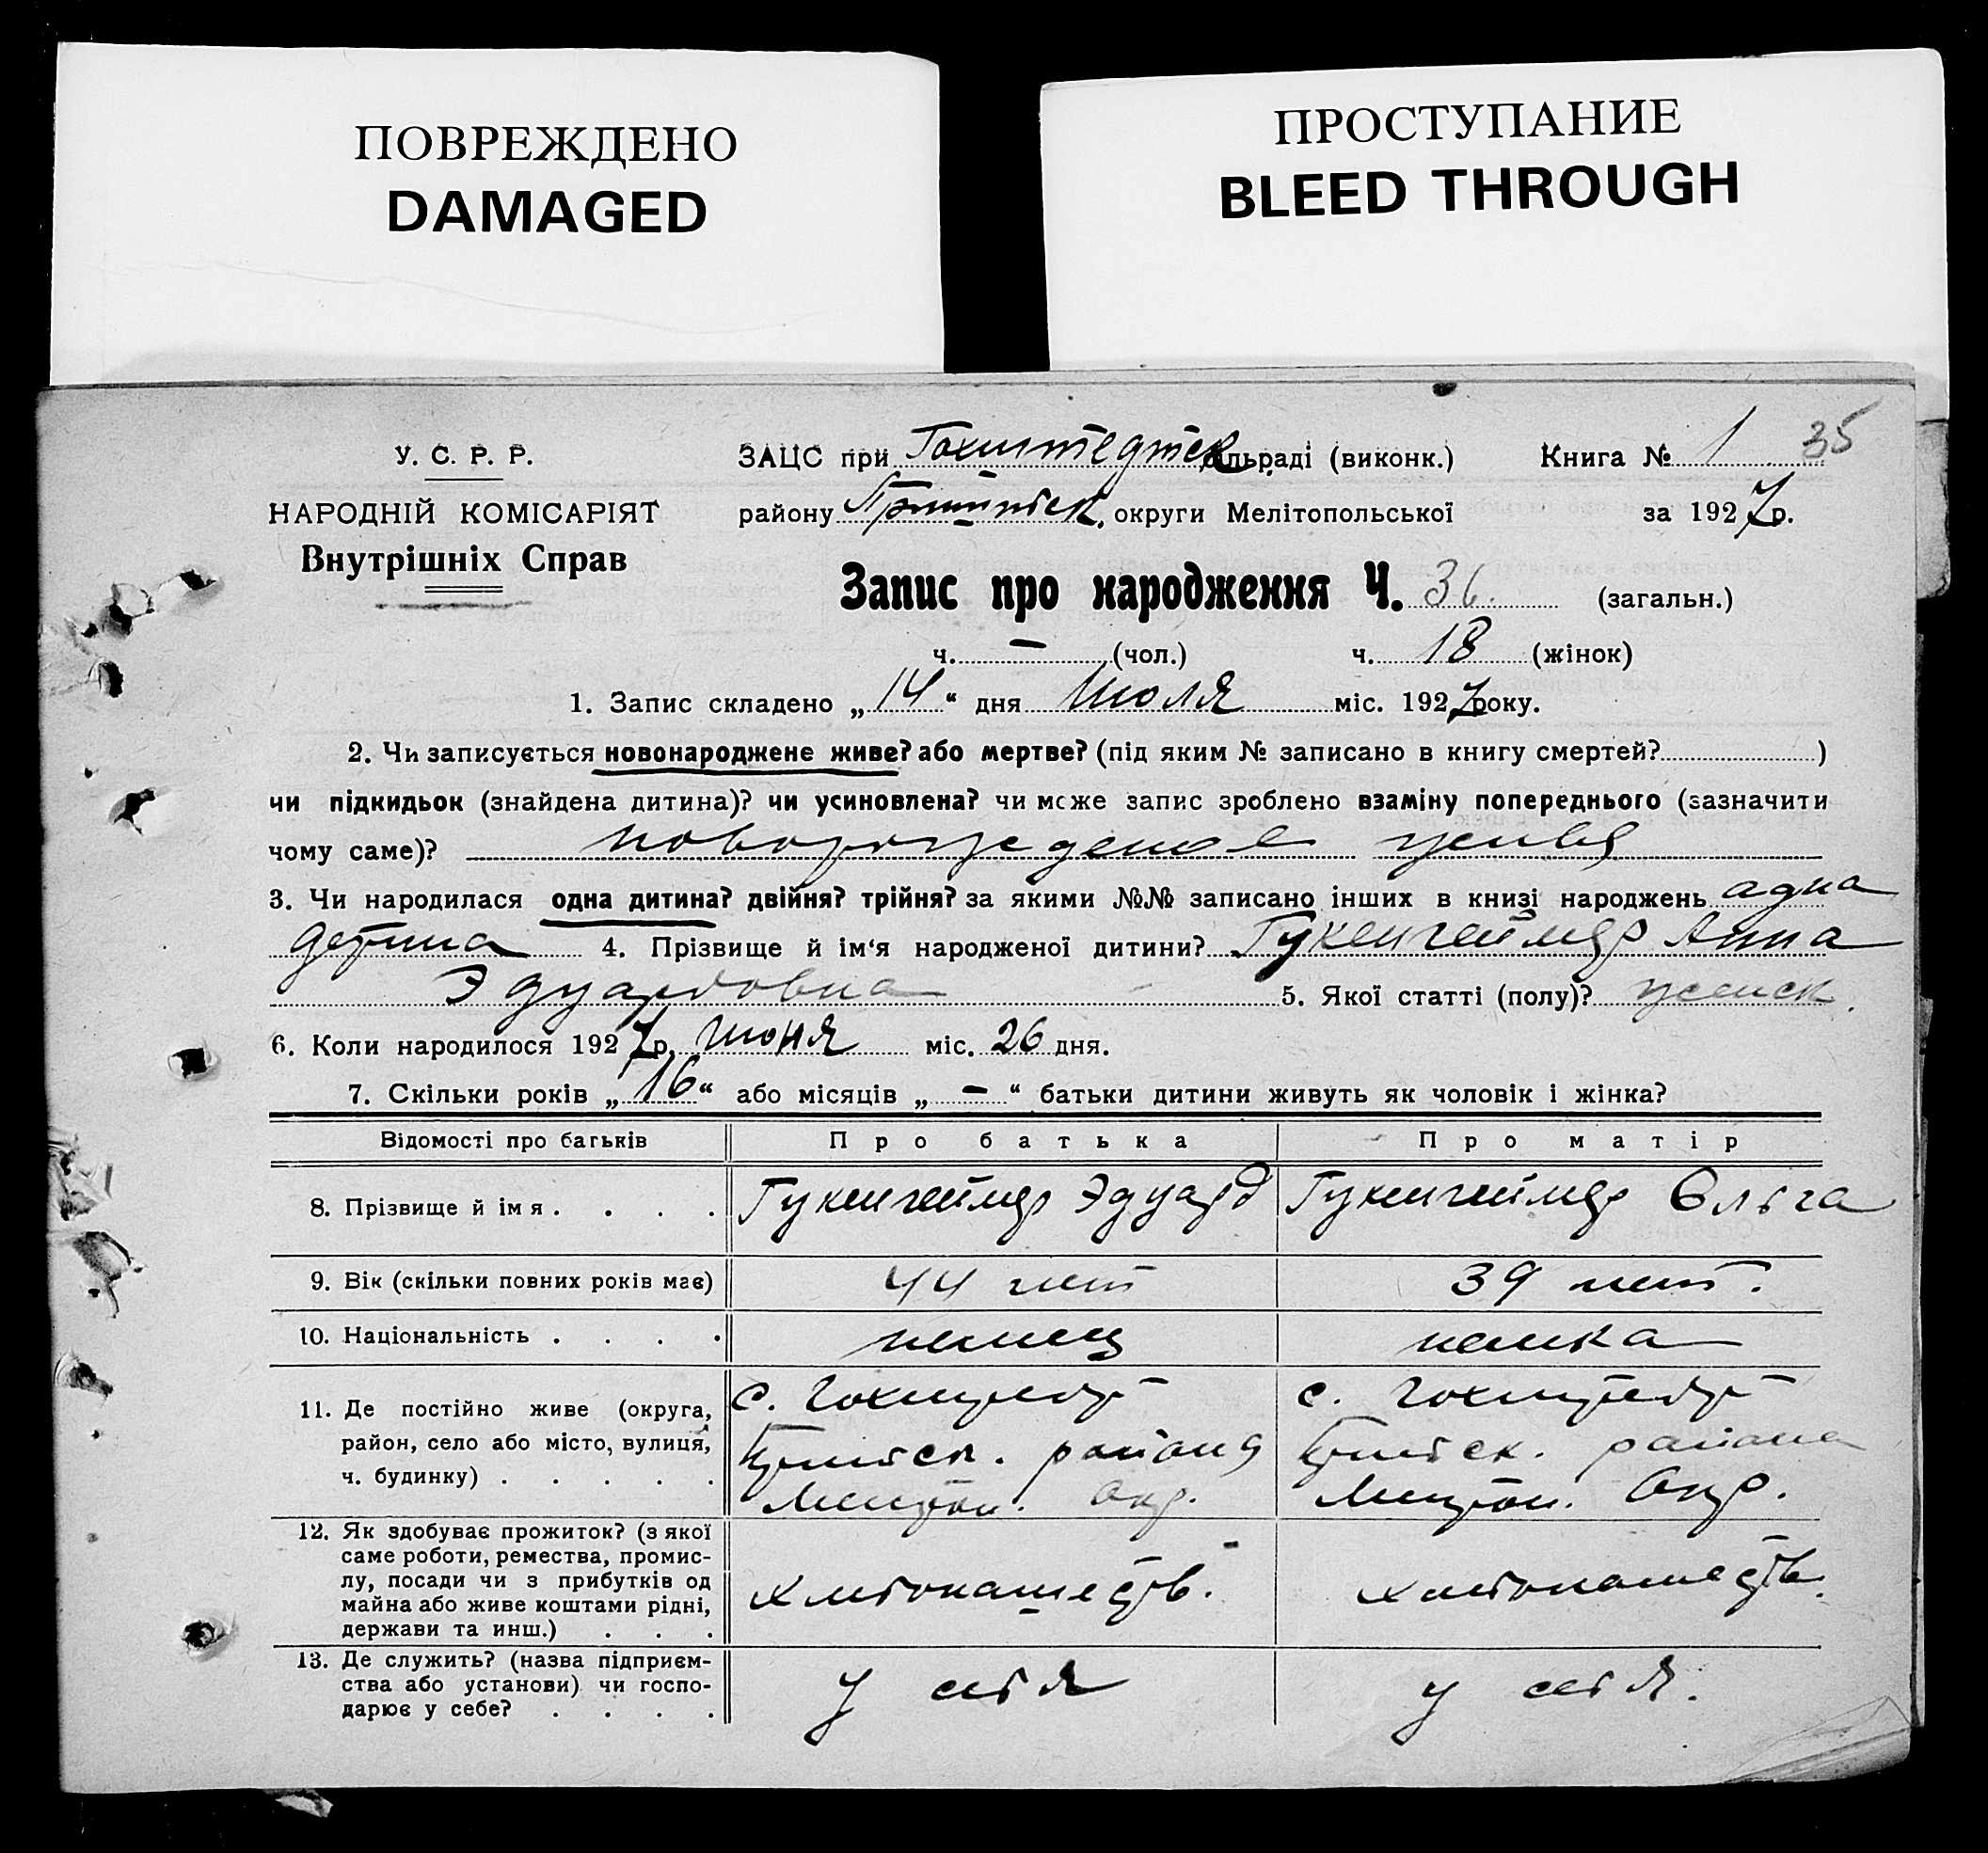 ПОВРЕЖДЕНО
DAMAGED
ПРОСТУПАНИЕ
BLEED THROUGH
У. С. Р. Р.
НАРОДНІЙ КОМІСАРІЯТ
Внутрішніх Справ
ЗАЦС при Гохштедтск. сільраді (виконк.) Книга № 1 35
району Пришибск. округи Мелітопольської за 1927 р.
Запис про народження Ч. 36. (загальн.)
ч. — (чол.) ч. 18 (жінок)
1. Запис складено „14“ дня Июля міс. 1927 року.
2. Чи записується новонароджене живе? або мертве? (під яким № записано в книгу смертей? )
чи підкидьок (знайдена дитина)? чи усиновлена? чи може запис зроблено взаміну попереднього (зазначити
чому саме)? новорожденное живое
3. Чи народилася одна дитина? двійня? трійня? за якими №№ записано інших в книзі народжень одна
дитина 4. Прізвище й ім‘я народженої дитини? Гукенгеймер Анна
Эдуардовна 5. Якої статті (полу)? женск.
6. Коли народилося 1927 р. июня міс. 26 дня.
7. Скільки років „16“ або місяців „—“ батьки дитини живуть як чоловік і жінка?
Відомості про батьків Про батька Про матір
8. Прізвище й імя . . . . Гукенгеймер Эдуард Гукенгеймер Ольга
9. Вік (скільки повних років має) 44 лет 39 лет.
10. Національність . . . . немец немка
11. Де постійно живе (округа, с. Гохштедт с. Гохштедт
район, село або місто, вулиця, Пришибск. района Пришибск. района
ч. будинку) . . . . . Мелитоп. Окр. Мелитоп. Окр.
12. Як здобуває прожиток? (з якої
саме роботи, ремества, промис-
лу, посади чи з прибутків од хлебопашеств. хлебопашеств.
майна або живе коштами рідні,
держави та инш.) . . .
13. Де служить? (назва підприєм-
ства або установи) чи госпо- у себя у себя.
дарює у себе? . . . .